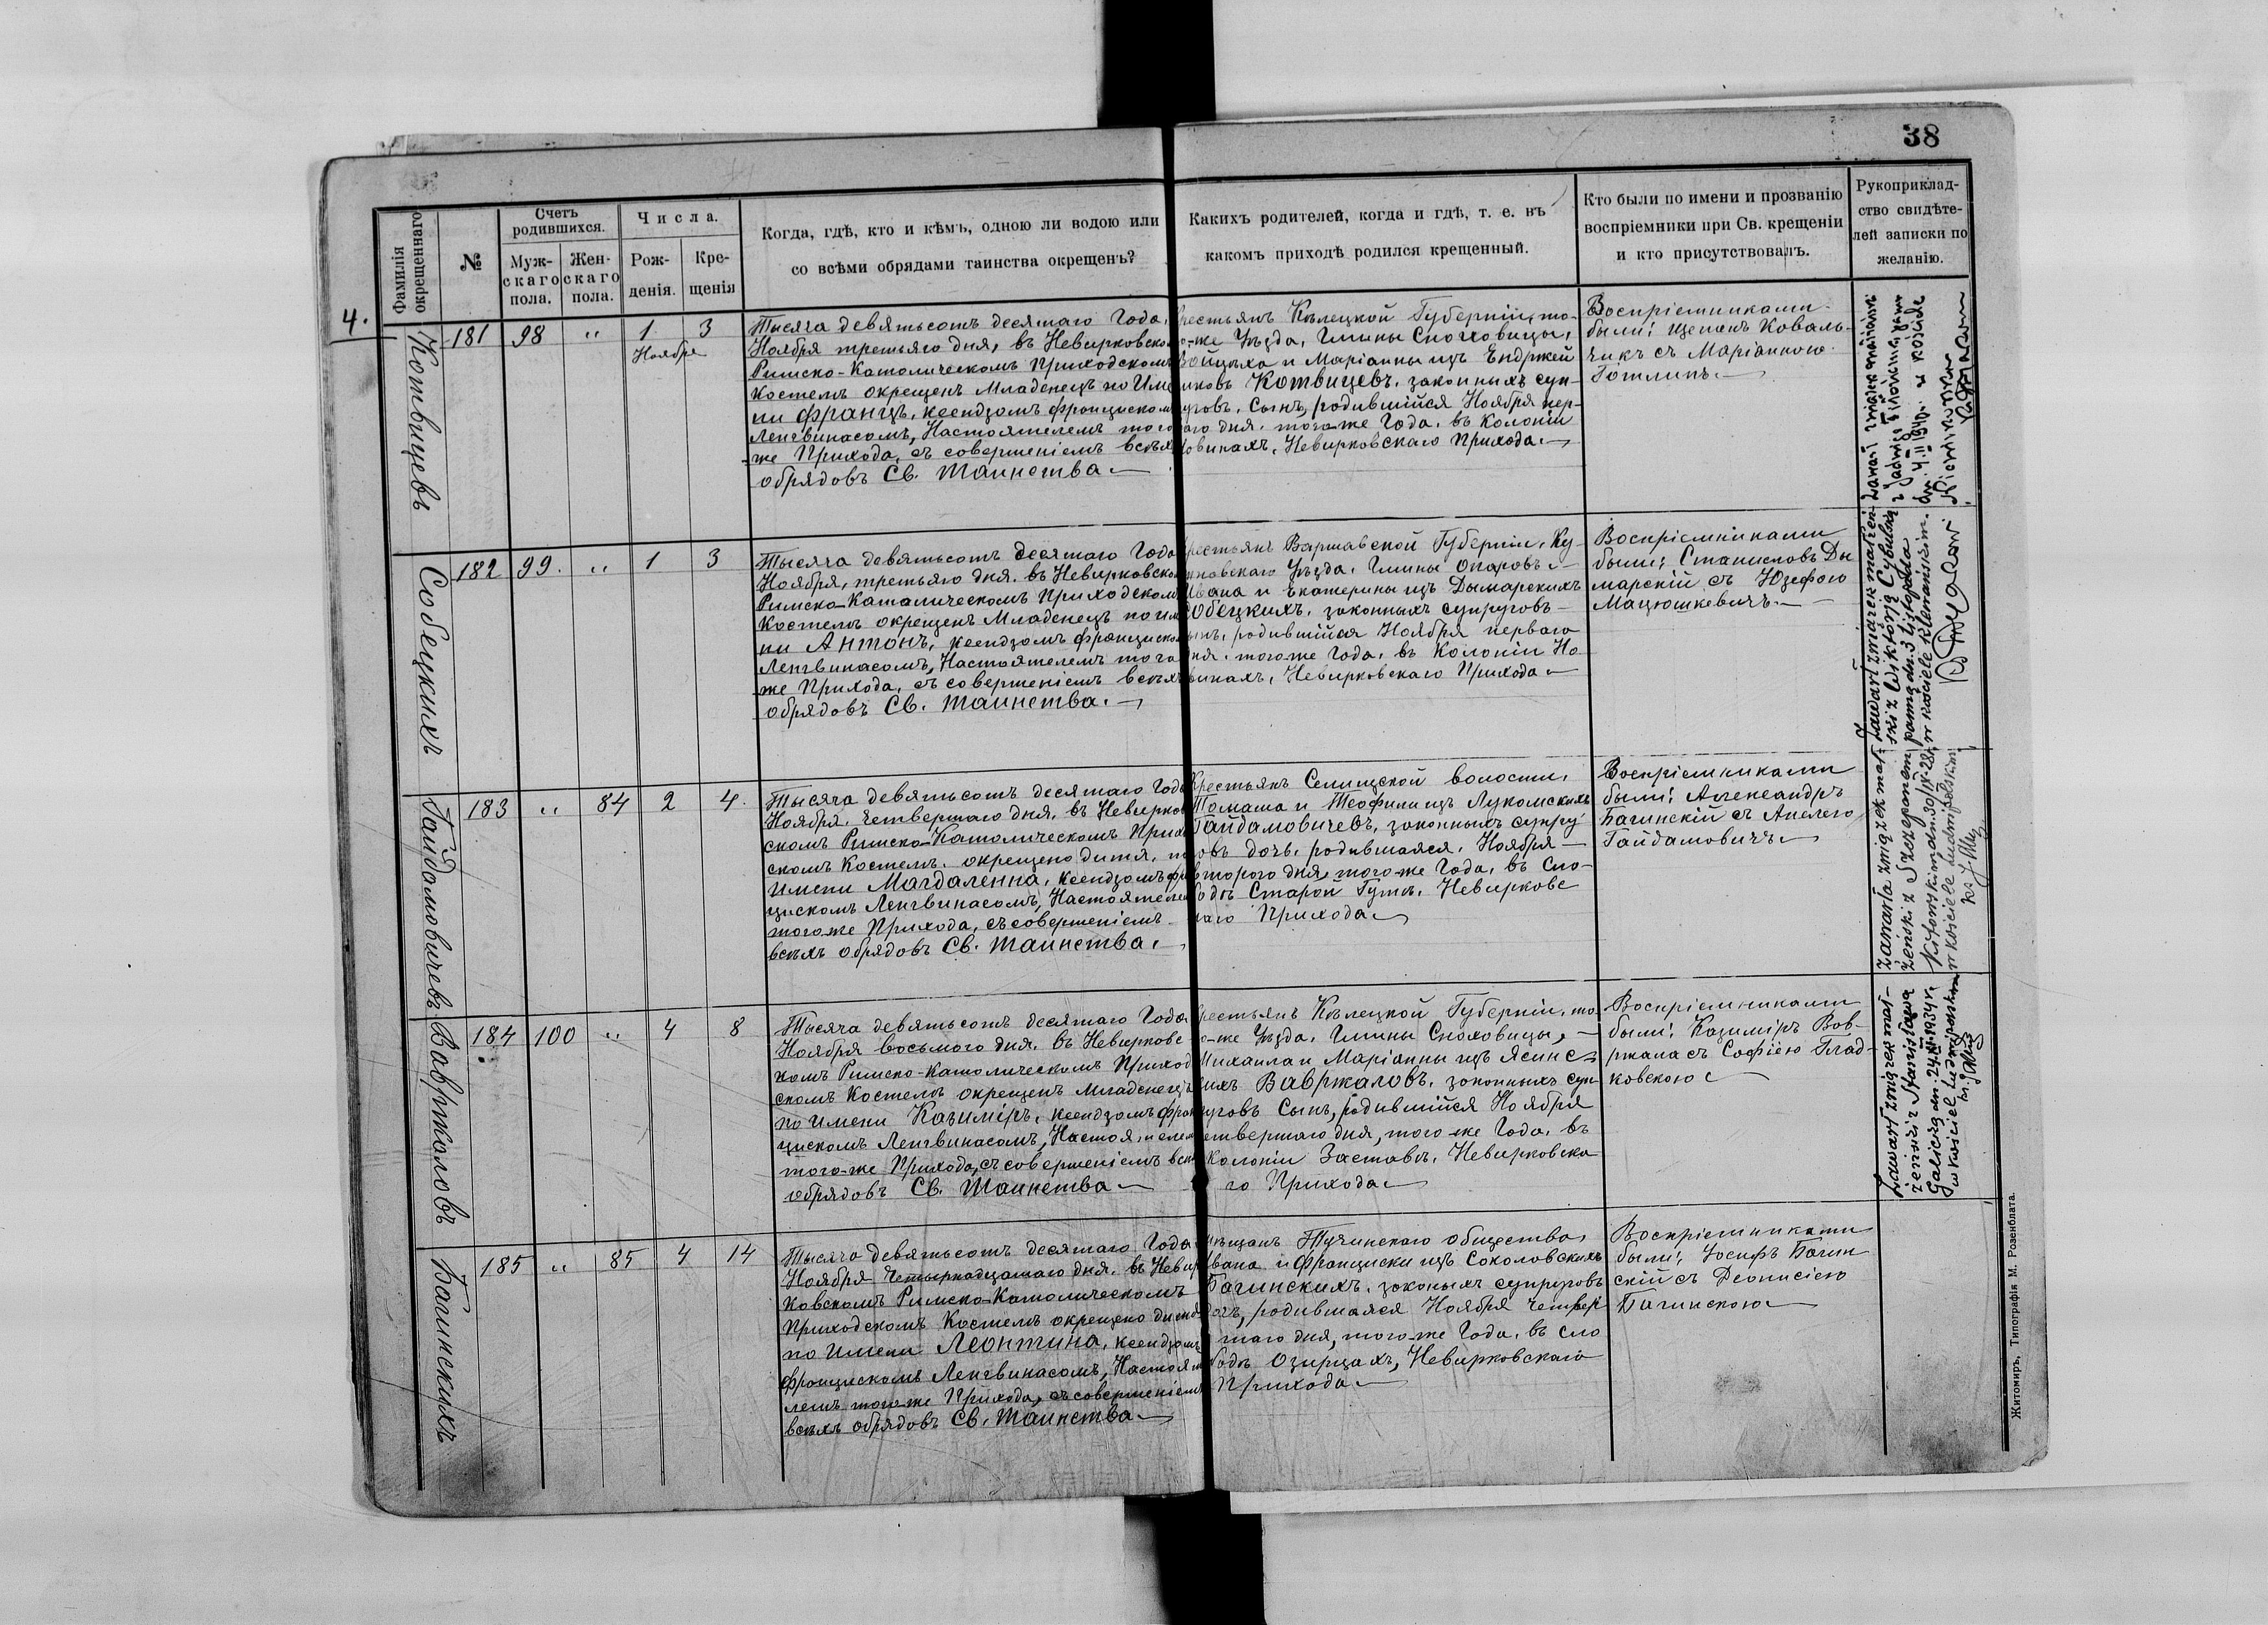 38
4.
Фамилія окрещеннаго
№
Счетъ родившихся.
Муж-
скаго
пола.
Жен-
скаго
пола.
Числа.
Рож-
денія.
Кре-
щенія
Когда, гдѣ, кто и кѣмъ, одною ли водою или
со всѣми обрядами таинства окрещенъ?
Какихъ родителей, когда и гдѣ, т. е. въ
какомъ приходѣ родился крещенный.
Кто были по имени и прозванію
воспріемники при Св. крещеніи
и кто присутствовалъ.
Рукоприклад-
ство свидѣте-
лей записки по
желанію.
Котвицевъ
181 98 " 1 3
Ноября
Тысяча девятьсотъ десятаго Года,
Ноября третьяго дня, въ Невирковско
Римско-Католическомъ Приходскомъ
Костелѣ окрещенъ Младенецъ по Име
ни Францъ, ксендзомъ Францискомъ
Ленгвинасомъ, Настоятелемъ того
же Прихода, съ совершеніемъ всѣхъ
обрядовъ Св. Таинства.
рестьянъ Кѣлецкой Губерніи, то-
-же Уѣзда, Гмины
Войцѣха и Маріанны изъ Енджей
иковъ Котвицевъ, законныхъ суп-
уговъ, Сынъ, родившійся Ноября пер-
аго дня, того-же Года, въ Колоніи
Новинахъ, Невирковскаго Прихода.
Воспріемниками
были: Щепанъ Коваль-
чикъ съ Маріанною
Готлипъ.
Zawarł związek małżeń
ski z Wiktorją Cybulską
panną dn. 3 listopada
w kościele
Собецкихъ
182 99. " 1 3
Тысяча девятьсотъ десятаго Года
Ноября, третьяго дня, въ Невирковском
Римско-Католическомъ Приходском
Костелѣ окрещенъ Младенецъ по име
ни Антонъ, ксендзомъ Франциском
Ленгвинасомъ, Настоятелемъ того
же Прихода, съ совершеніемъ всѣхъ
обрядовъ Св. Таинства.
рестьянъ Варшавской Губерніи, Ку-
тновскаго Уѣзда, Гмины Опоровъ
Ивана и Екатерины изъ Дымарскихъ
Собецкихъ, законныхъ супруговъ
ынъ, родившійся Ноября перваго
ня, того-же Года, въ Колоніи Но-
винахъ, Невирковскаго Прихода
Воспріемниками
были: Станиславъ Ды
марскій съ Юзефою
Мацюшкевичъ.
Гайдамовичевъ
183 " 84 2 4.
Тысяча девятьсотъ десятаго Года
Ноября, четвертаго дня, въ Невирков
скомъ Римско-Католическомъ Прихо
скомъ Костелѣ, окрещено дитя, п
имени Магдаленна, ксендзомъ Фра
цискомъ Ленгвинасомъ, Настоятеле
того-же Прихода, съ совершеніемъ
всѣхъ обрядовъ Св. Таинства.
Крестьянъ Селищской волости,
Томаша и Теофили изъ Лукомскихъ
Гайдамовичевъ, законныхъ супру
овъ дочь, родившаяся, Ноября
второго дня, того-же Года, въ Сло-
бодѣ Старой Гутѣ, Невирковс
каго Прихода
Воспріемниками
были: Александръ
Багинскій съ Анелею
Гайдамовичъ
Zawarła związek mał-
żeński z Szczęsnem
dn. 30/IX-28 r.
w kościele Ludwipolskim
Вавржаловъ
184 100 " 4 8
Тысяча девятьсотъ десятаго Года
Ноября восьмого дня, въ Невирковс
комъ Римско-Католическомъ Приход
скомъ Костелѣ окрещенъ младенецъ
по имени Казиміръ, ксендзомъ Фран
цискомъ Ленгвинасомъ, Настоятелем
того-же Прихода, съ совершеніемъ всѣ
обрядовъ Св. Таинства
рестьянъ Кѣлецкой Губерніи, то
-же Уѣзда, Гмины
Михаила и Маріанны изъ Ясинс
кихъ Вавржаловъ, законныхъ суп-
руговъ Сынъ, родившійся Ноября
етвертаго дня, того-же Года, въ
Колоніи Заставѣ, Невирковска
го Прихода
Воспріемниками
были: Казиміръ Вав-
ржала съ Софіею Глад-
ковскою
Zawarł związek mał-
żeński z Stanisława
Galicką dn. 24 1934 r.
w kościele Ludwipolskim
Багинскихъ
185 " 85 4 14
Тысяча девятьсотъ десятаго Года
Ноября Четырнадцатаго дня, въ Невир
ковскомъ Римско-Католическомъ
Приходскомъ Костелѣ окрещено дитя
по имени Леонтина, ксендзомъ
Францискомъ Ленгвинасомъ, Настояте
лемъ того-же Прихода, съ совершеніемъ
всѣхъ обрядовъ Св. Таинства
мѣщанъ Тучинскаго общества,
Ивана и Франциски изъ Соколовскихъ
Багинскихъ, законыхъ супруговъ
дочь, родившаяся Ноября четвер
таго дня, того-же Года, въ сло
бодѣ Озирцахъ, Невирковскаго
Прихода
Воспріемниками
были: Іосифъ Багин
скій съ Діонисіею
Багинскою
Житомиръ, Типографія М. Розенблата.